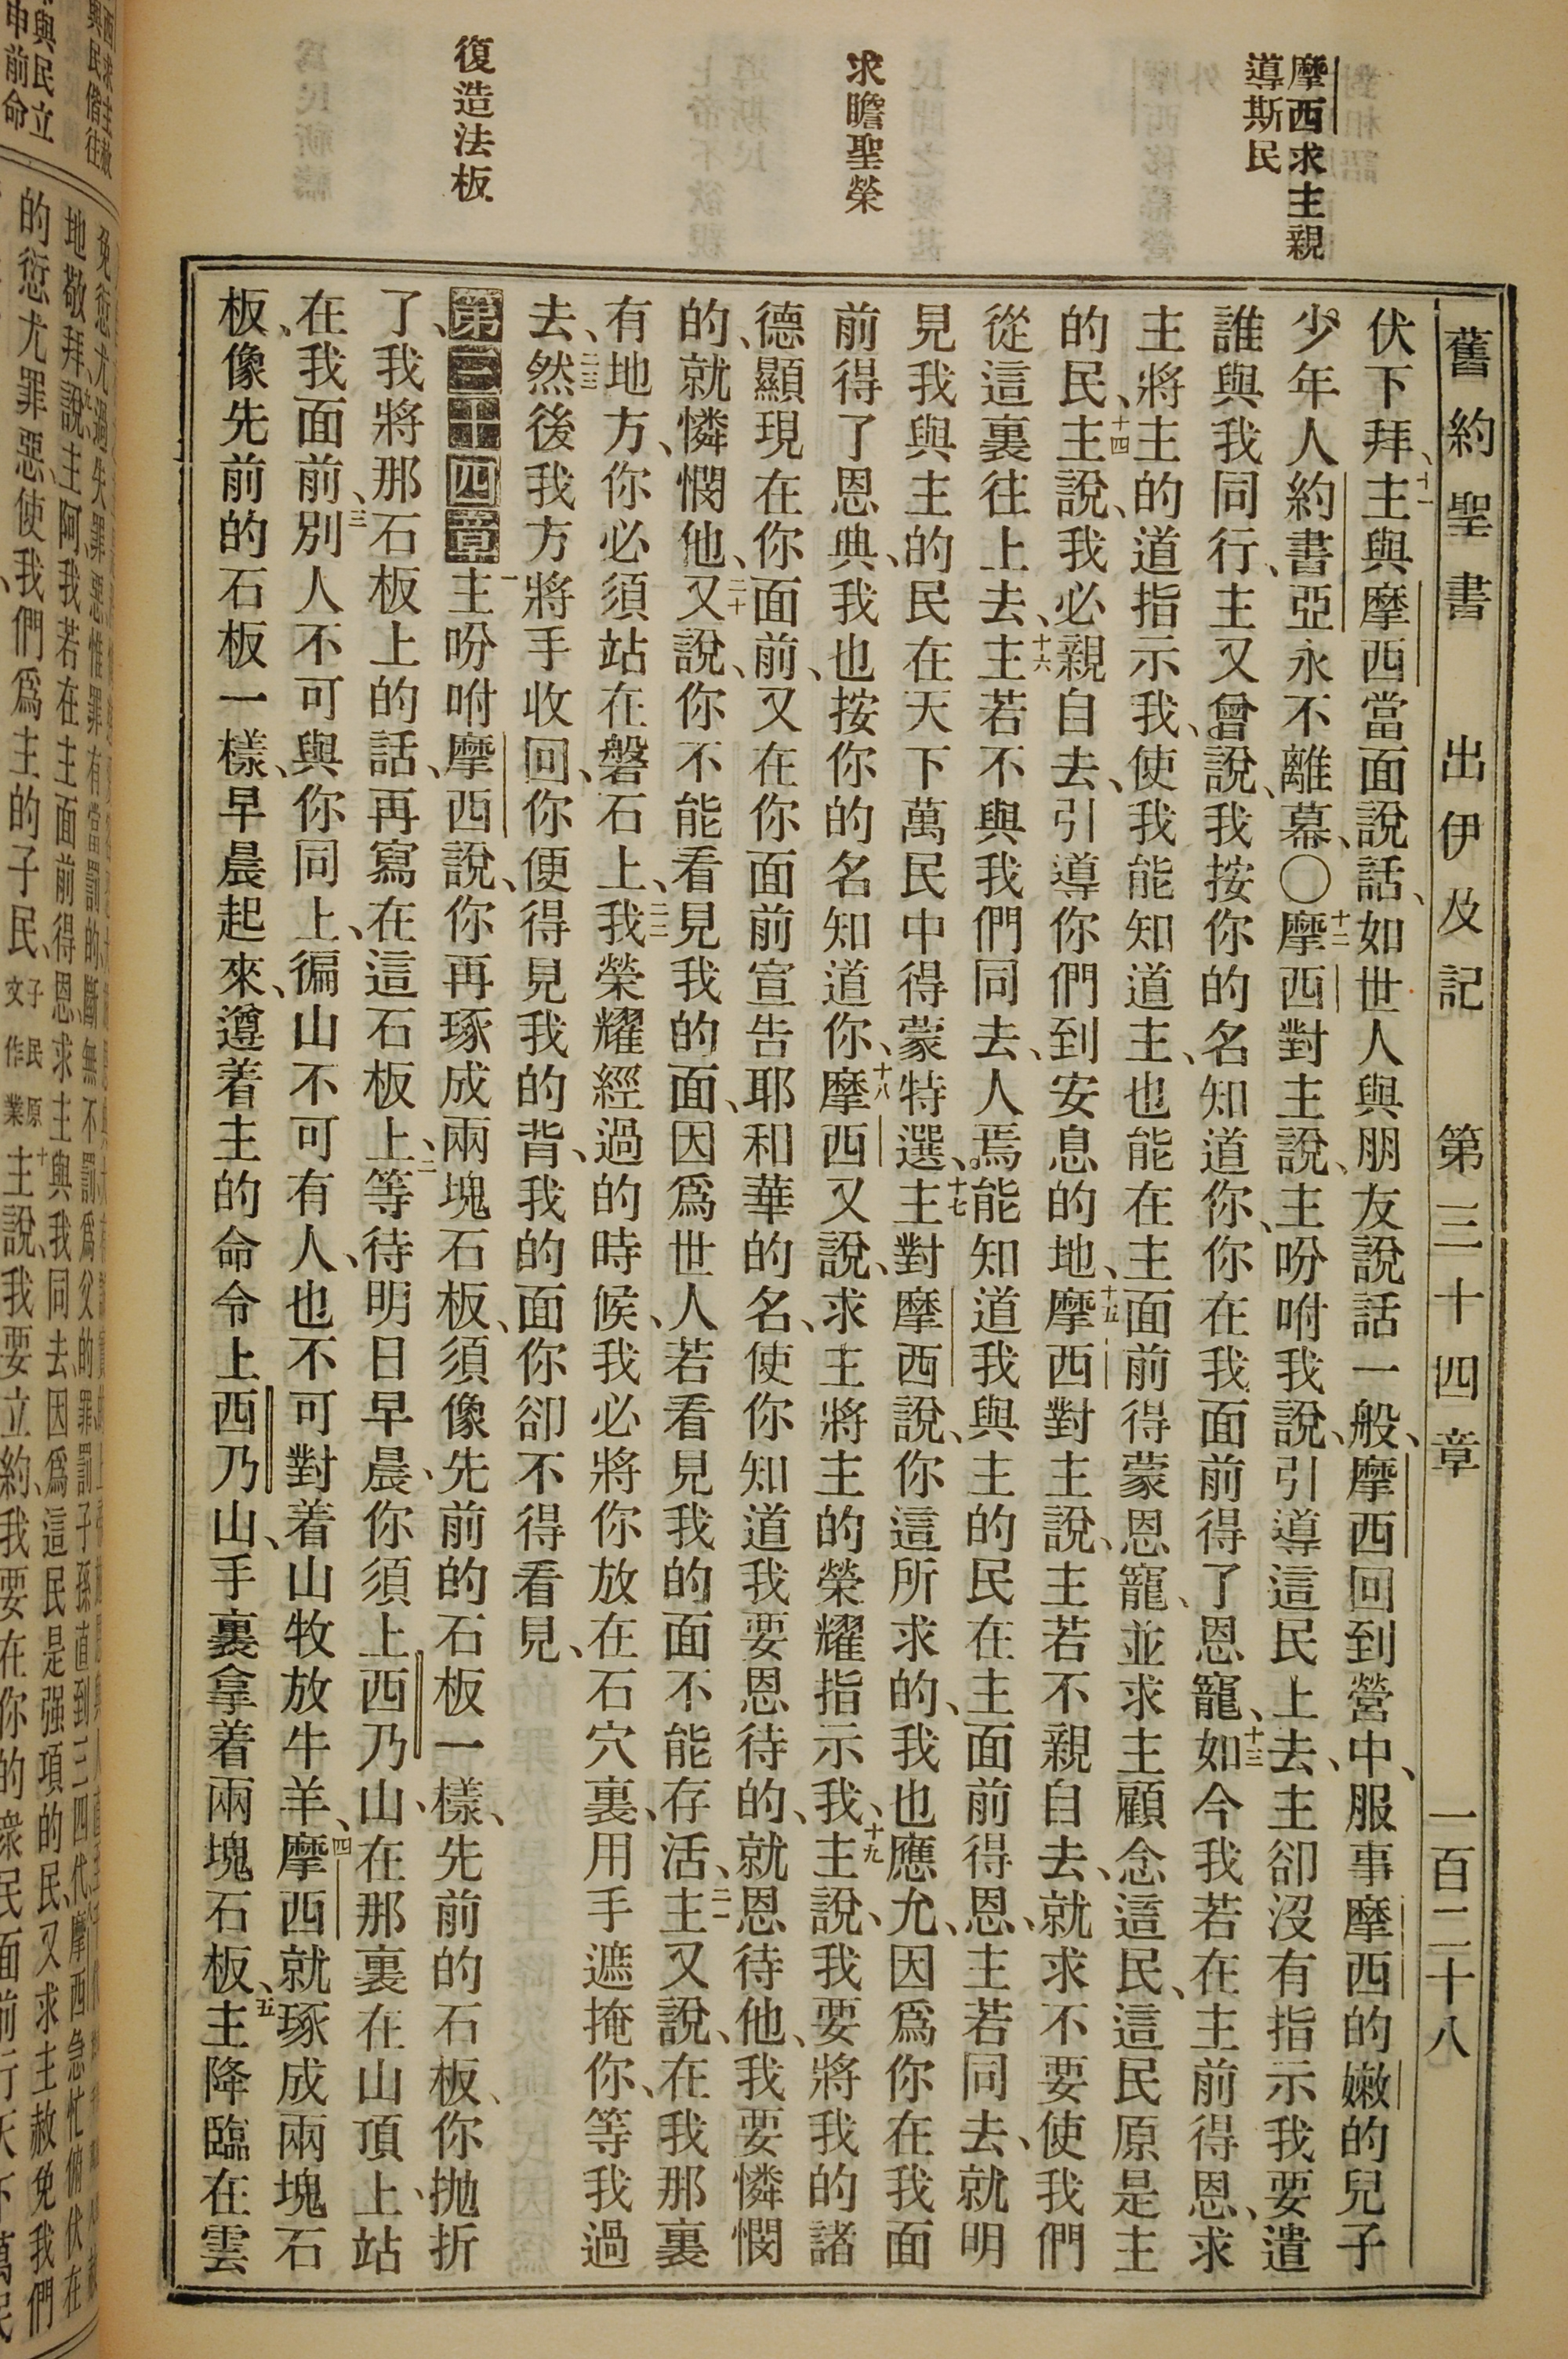 摩西求主親
導斯民
求瞻聖榮
復造法板
舊約聖書 出伊及記 第三十四章 一百二十八
伏下拜、十一主與摩西當面說話、如世人與朋友說話一般、摩西回到營中、服事摩西的嫩的兒子
少年人約書亞永不離幕、〇十二摩西對主說、主吩咐我說、引導這民上去、主卻沒有指示我要遣
誰與我同行、主又曾說、我按你的名知道你、你在我面前得了恩寵、十三如今我若在主前得恩、求
主將主的道指示我、使我能知道主、也能在主面前得蒙恩寵、並求主顧念這民、這民原是主
的民、十四主說、我必親自去、引導你們到安息的地、十五摩西對主說、主若不親自去、就求不要使我們
從這裏往上去、十六主若不與我們同去、人焉能知道我與主的民在主面前得恩、主若同去、就明
見我與主的民在天下萬民中得蒙特選、十七主對摩西說、你這所求的、我也應允、因爲你在我面
前得了恩典、我也按你的名知道你、十八摩西又說、求主將主的榮耀指示我、十九主說、我要將我的諸
德顯現在你面前、又在你面前宣告耶和華的名、使你知道我要恩待的、就恩待他、我要憐憫
的、就憐憫他、二十又說、你不能看見我的面、因爲世人若看見我的面不能存活、二一主又說、在我那裏
有地方、你必須站在磐石上、二二我榮耀經過的時候、我必將你放在石穴裏、用手遮掩你、等我過
去、二三然後我方將手收回、你便得見我的背、我的面你卻不得看見、
第三十四章 一主吩咐摩西說、你再琢成兩塊石板、須像先前的石板一樣、先前的石板、你抛折
了、我將那石板上的話、再寫在這石板上、二等待明日早晨、你須上西乃山、在那裏在山頂上、站
在我面前、三別人不可與你同上、徧山不可有人、也不可對着山牧放牛羊、四摩西就琢成兩塊石
板、像先前的石板一樣、早晨起來、遵着主的命令上西乃山、手裏拿着兩塊石板、五主降臨在雲